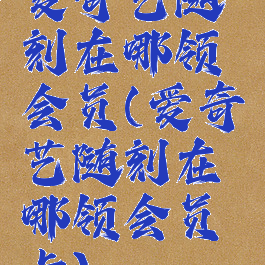 爱奇艺随
刻在哪领
会员(爱奇
艺随刻在
哪领会员
卡)